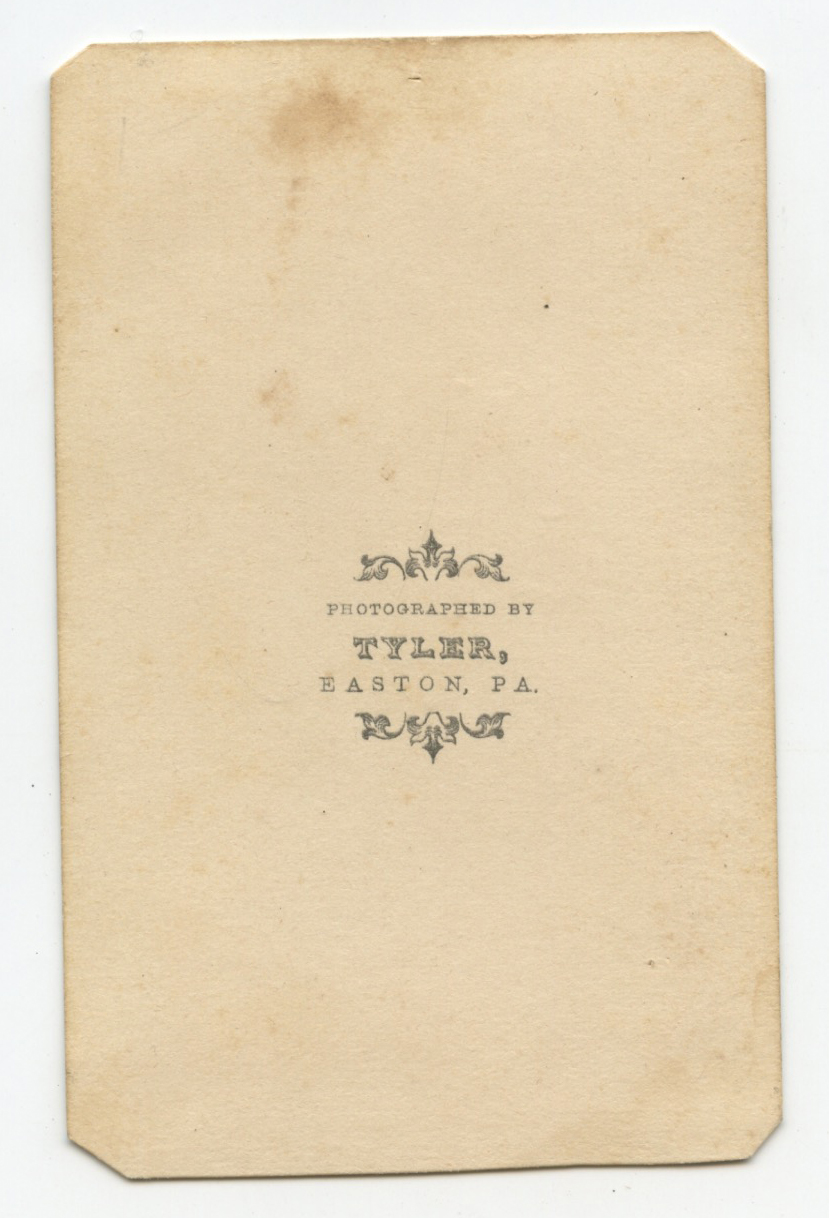 PHOTOGRAPHED BY
TYLER,
EASTON, PA.